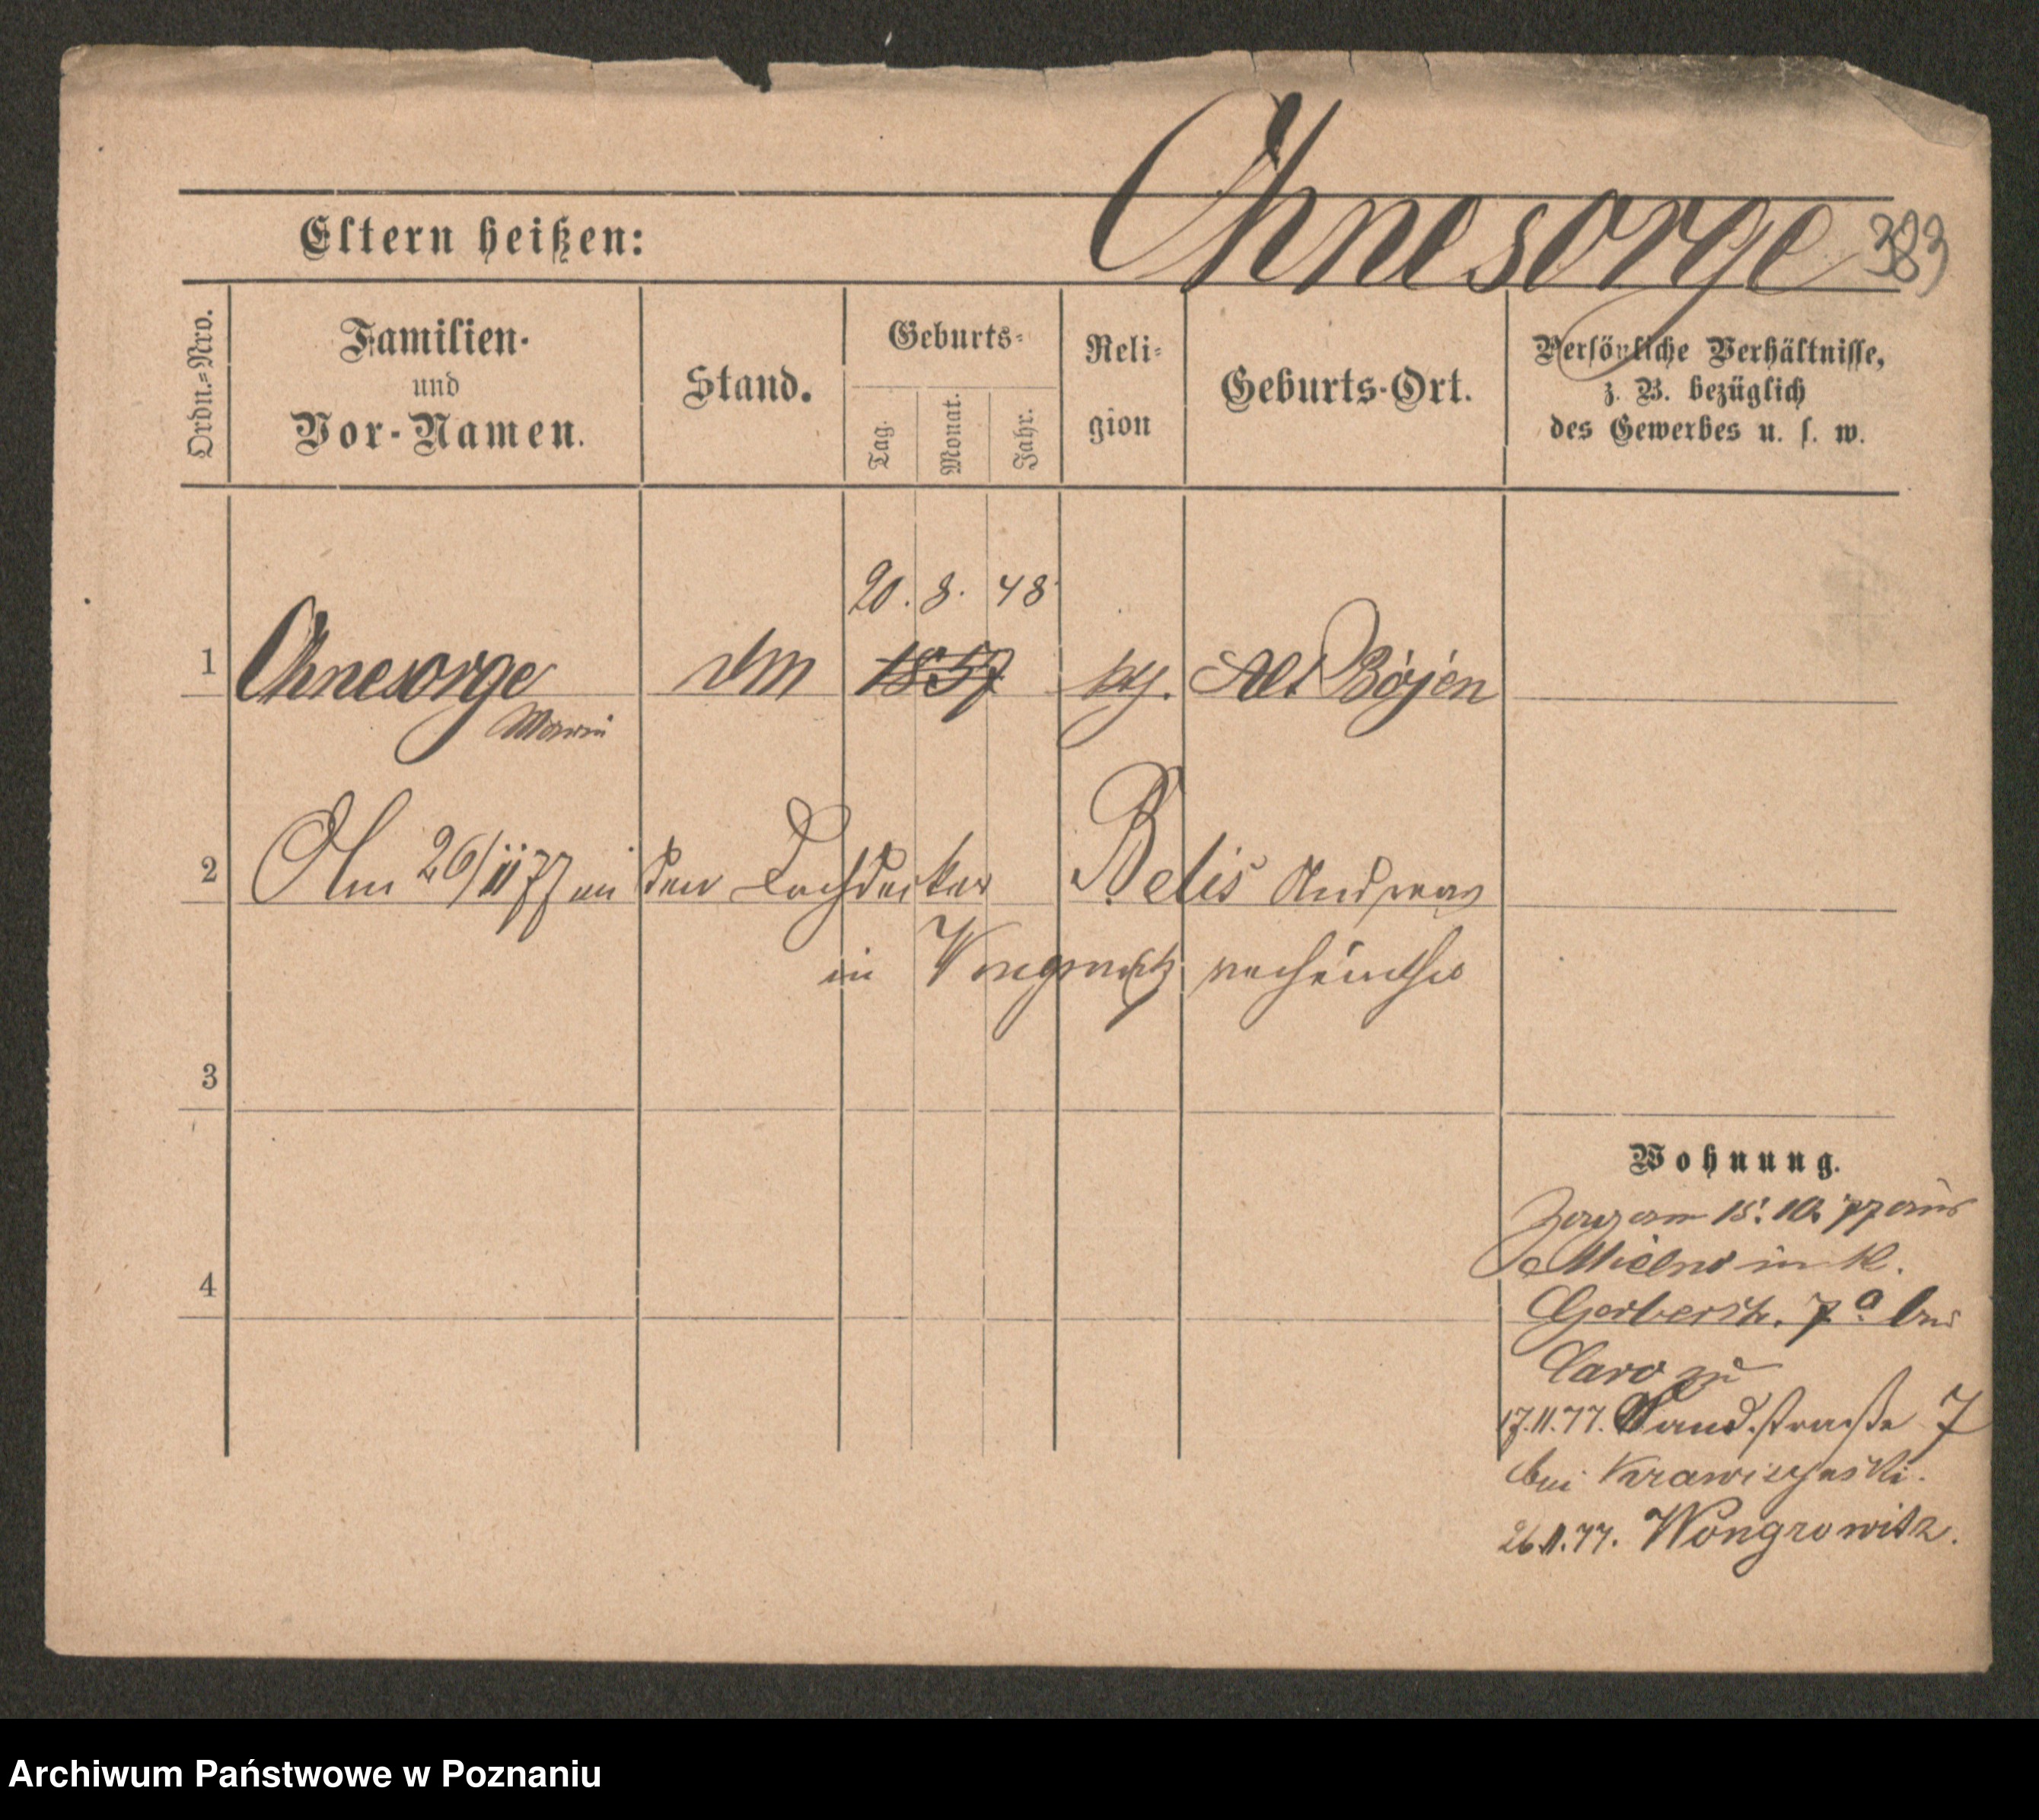 Ohnesorge
383
Eltern heißen:
Ordn.-Nro.
Familien-
und
Vor-Namen.
Stand.
Geburts-
Tag.
Monat.
Jahr.
Reli-
gion
Geburts-Ort.
Persönliche Verhältnisse,
z. B. bezüglich
des Gewerbes u. s. w.
20. 8. 48
1 Ohnesorge 1857 Alt Bojen
Marie
2 Am 26/11 77 an den Dachdecker Belis Andreas
in Wongrowitz verheirathet
3
4
Wohnung.
Zuzog am 15. 10. 77 aus
Mielno in K.
Gerberstr. 7a bei
Caro zu
17.11.77. Sandstraße 7
bei Krawczynski.
26.11.77. Wongrowitz.
Archiwum Państwowe w Poznaniu